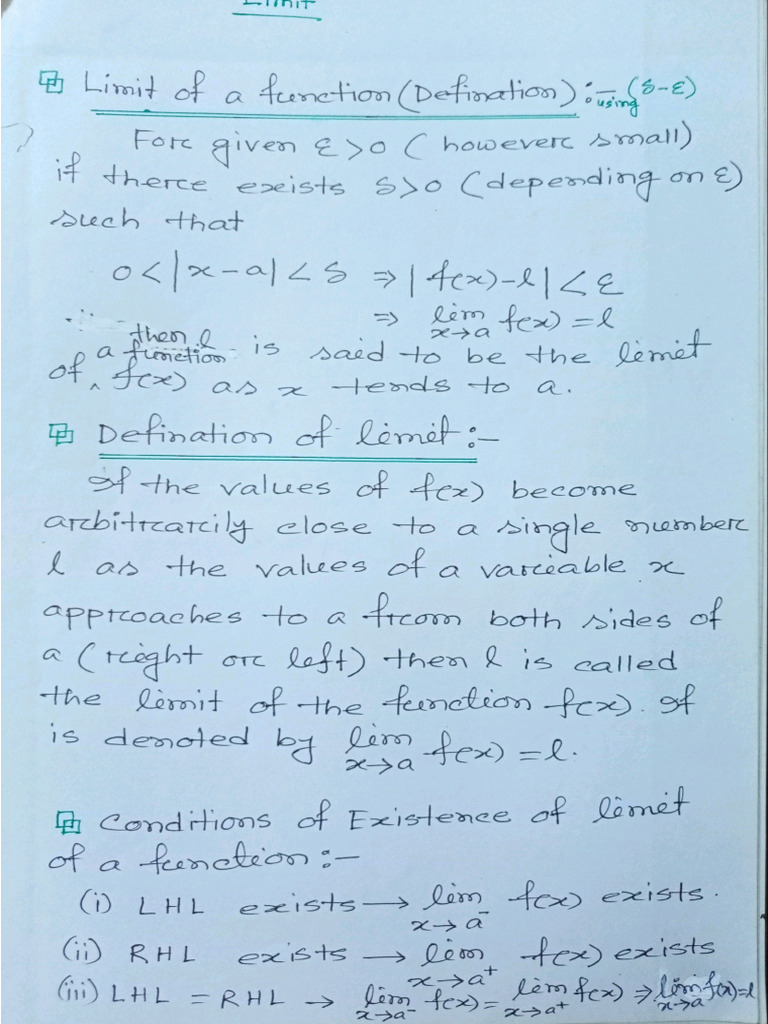 Limit
Limit of a function (Defination) :- using (δ-ε)
For given ε>0 ( however small)
if there exists δ>0 (depending on ε)
such that
0<|x-a|<δ ⇒ |f(x)-l|<ε
⇒ lim x→a f(x) = l
then l is said to be the limit
of a function f(x) as x tends to a.
Defination of limit :-
If the values of f(x) become
arbitrarily close to a single number
l as the values of a variable x
approaches to a from both sides of
a (right or left) then l is called
the limit of the function f(x). It
is denoted by lim x→a f(x) = l.
Conditions of Existence of limit
of a function :-
(i) LHL exists → lim x→a⁻ f(x) exists.
(ii) RHL exists → lim x→a⁺ f(x) exists
(iii) LHL = RHL → lim x→a⁻ f(x) = lim x→a⁺ f(x) ⇒ lim x→a f(x)=l